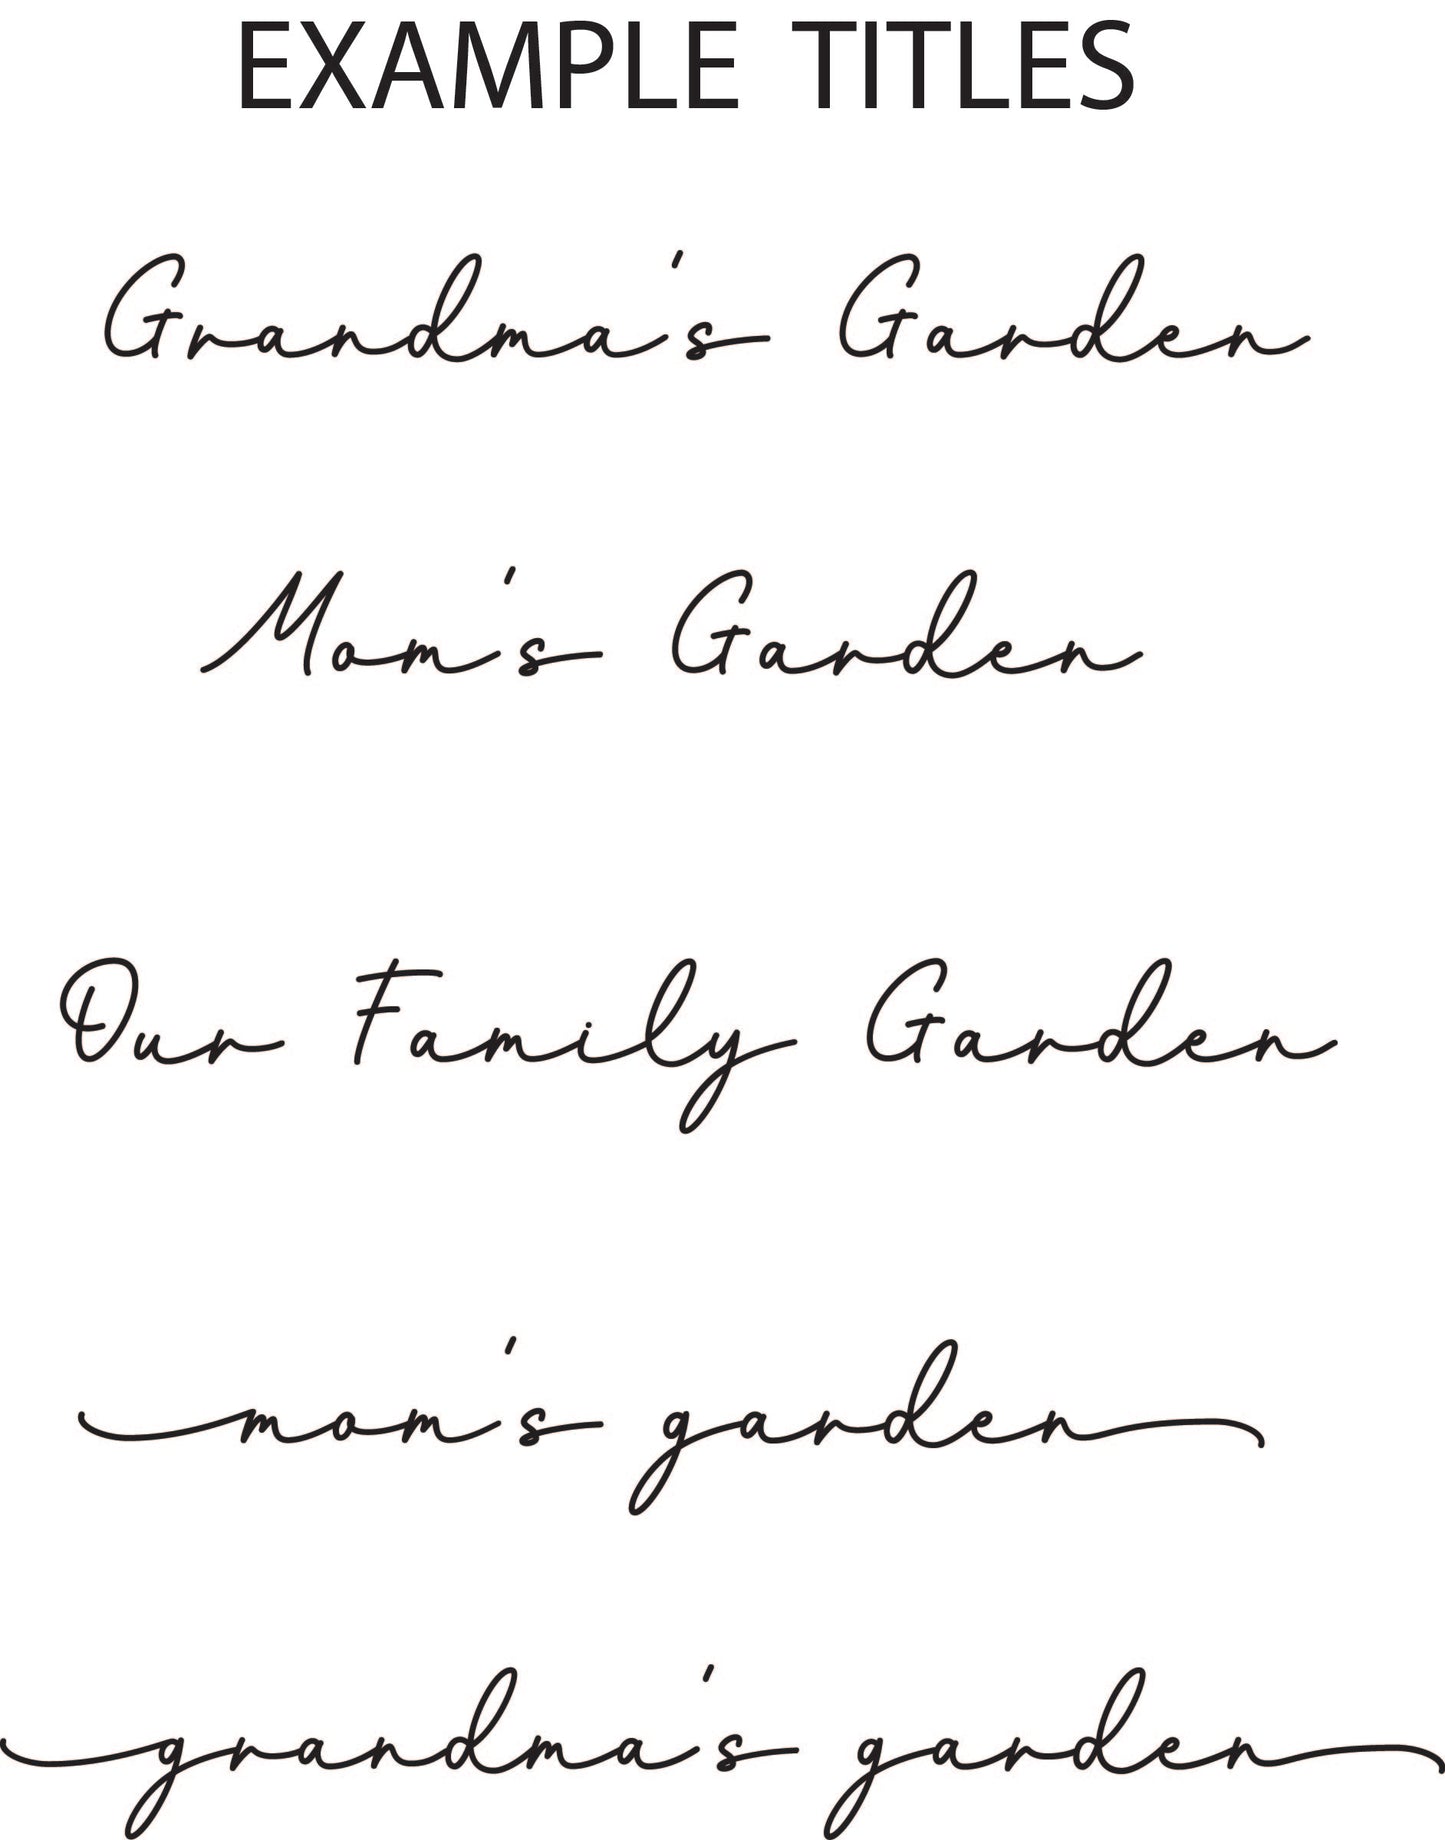 EXAMPLE TITLES
Grandma's Garden
Mom's Garden
Our Family Garden
mom's garden
grandma's garden